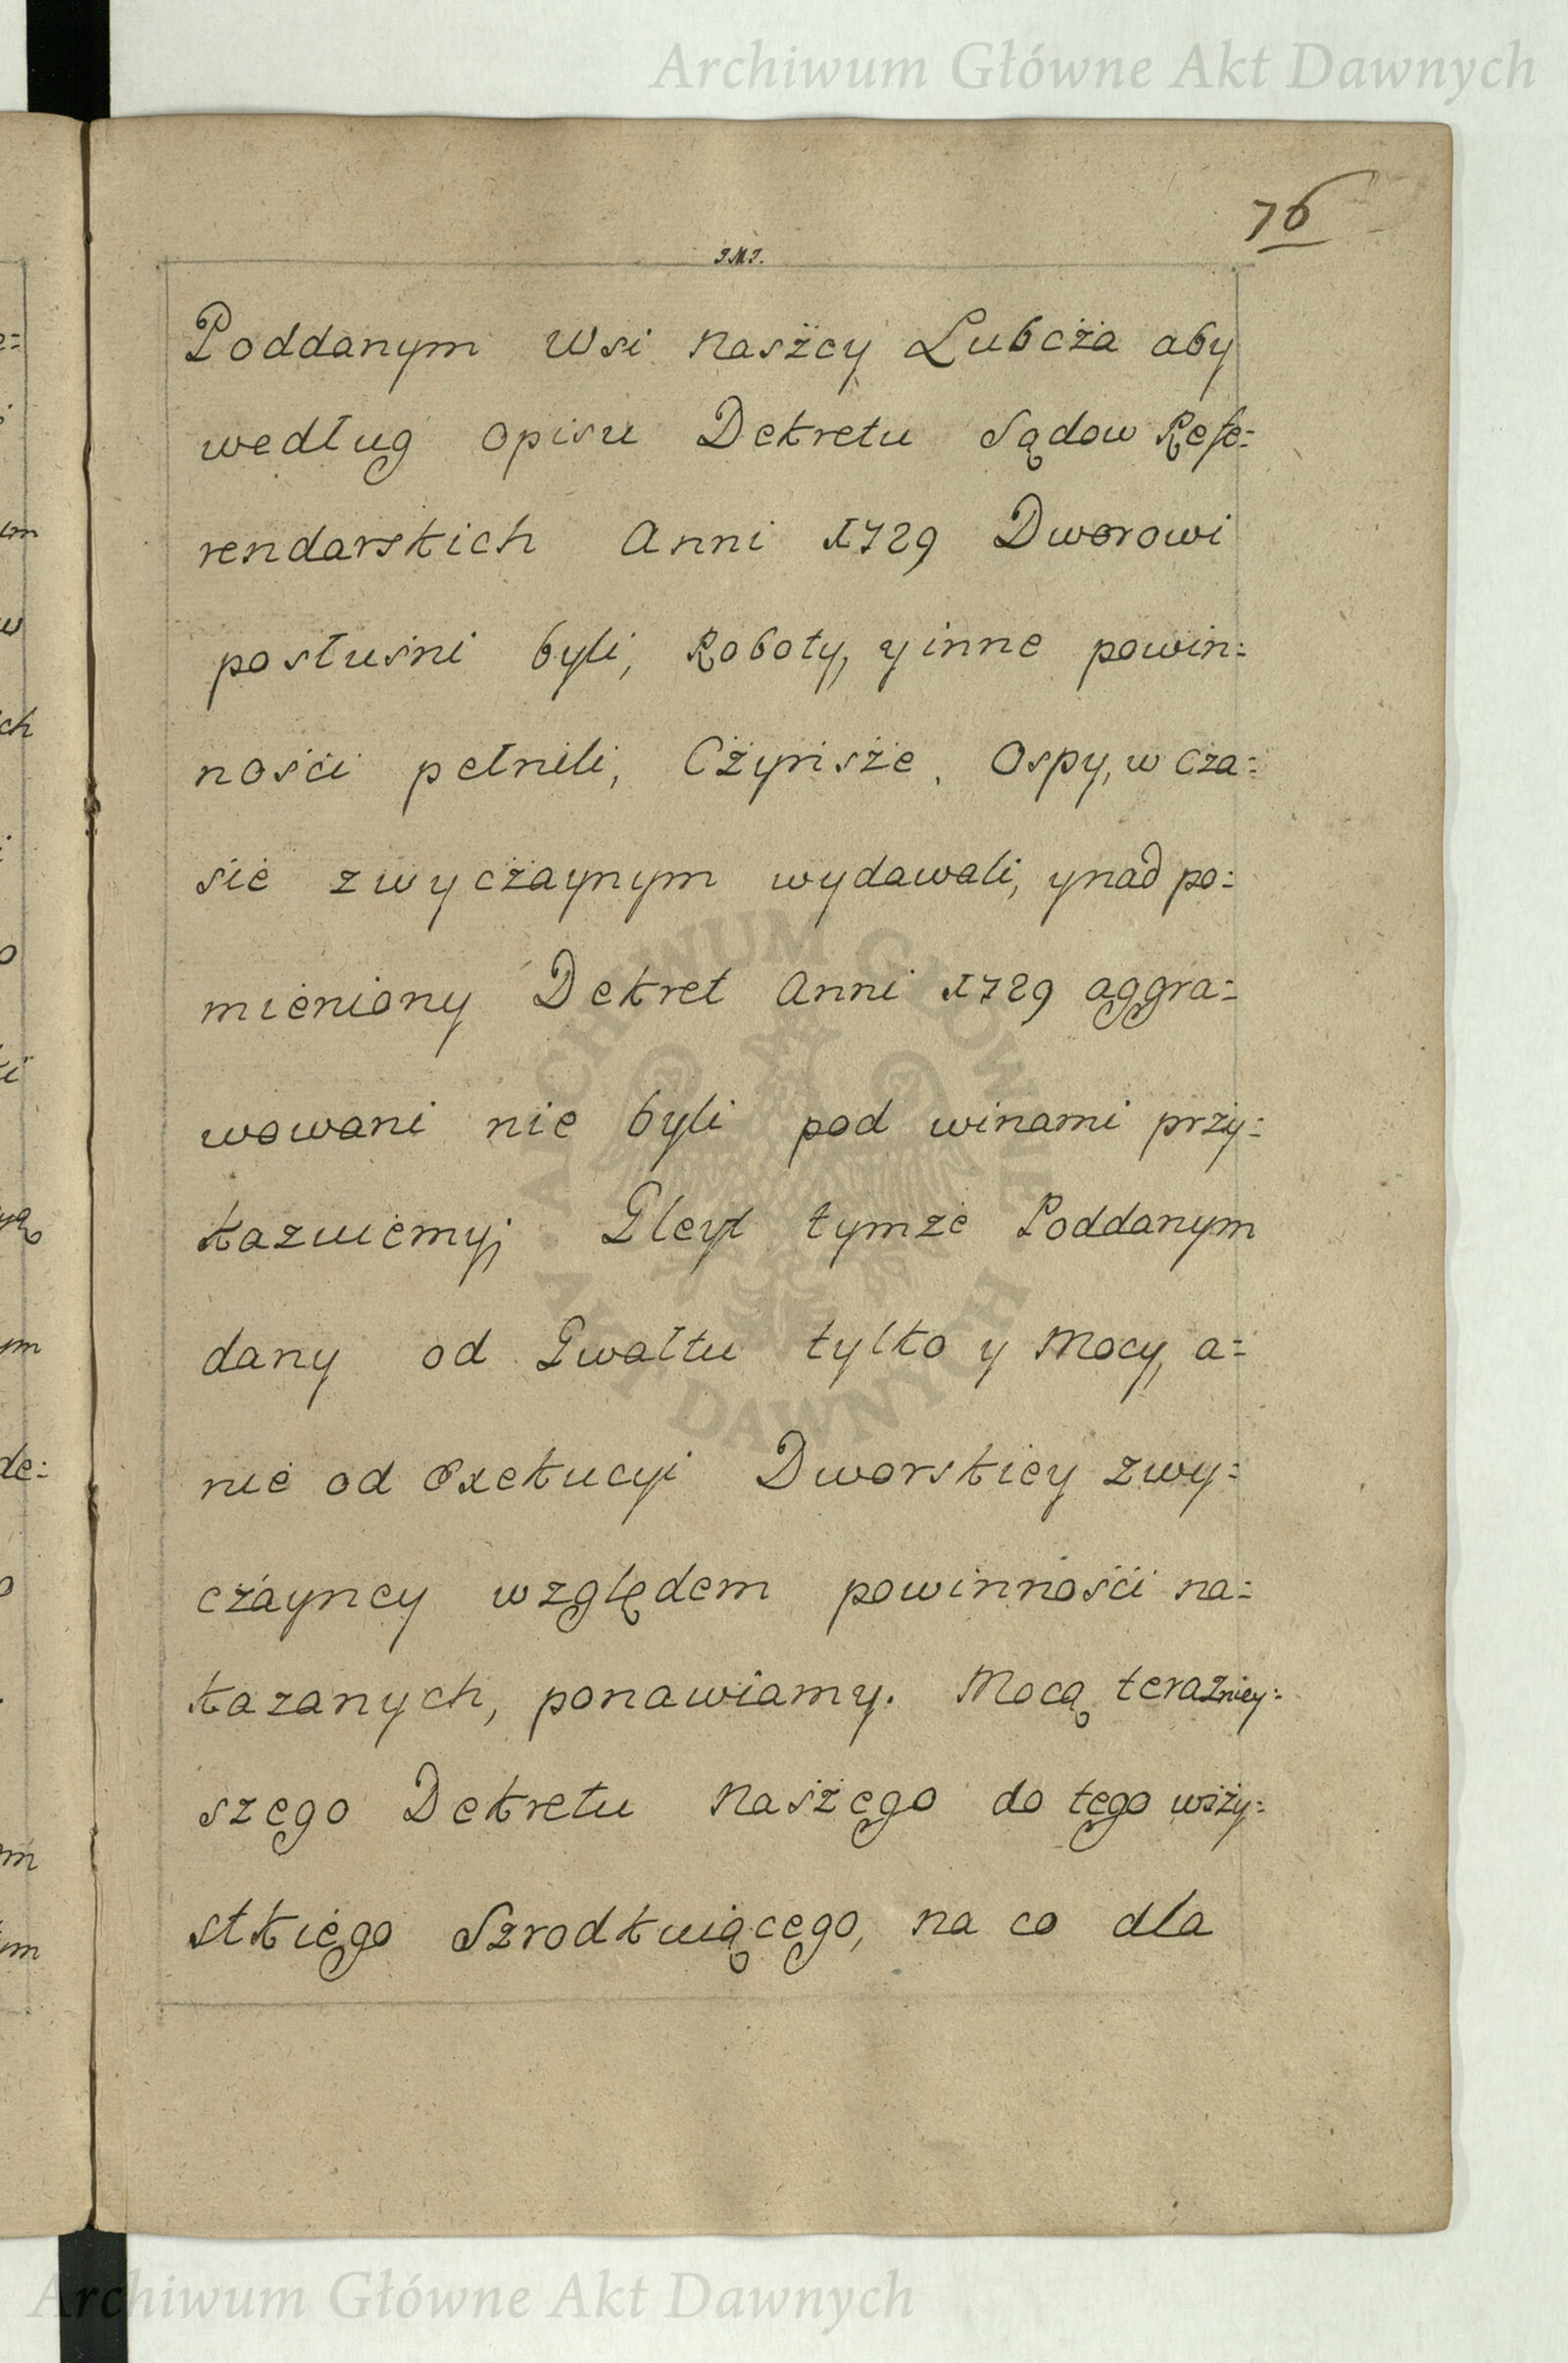 Archiwum Główne Akt Dawnych
76
J.M.J.
Poddanym Wsi Naszey Lubcża aby
według opisu Dekretu Sądow Refe=
rendarskich Anni 1729 Dworowi
posłuśni byli, Roboty, y inne powin=
nośći pełnili, Cżynsże, Ospy, w Cza=
sie zwycżaynym wydawali, y nad po=
mieniony Dekret Anni 1729 aggra=
wowani nie byli pod winami przy=
kazuiemy; Gleyt tymże Poddanym
dany od Gwałtu tylko y Mocy, a=
nie od Exekucyi Dworskiey zwy=
cżayney względem powinnośći na=
kazanych, ponawiamy. Mocą teraźniey=
szego Dekretu Naszego do tego wszy=
stkiego Szrodkuiącego, na co dla
ARCHIWUM GŁÓWNE AKT DAWNYCH
Archiwum Główne Akt Dawnych